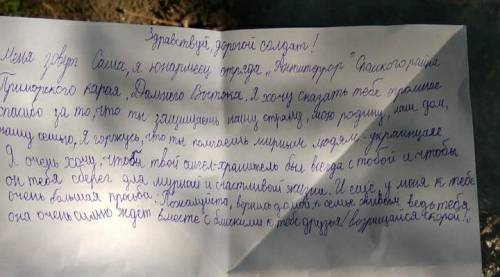 Здравствуй, дорогой солдат!
Меня зовут Саша, я юнармеец отряда "Антитеррор" Спасского района
Приморского карая, Дальнего Востока. Я хочу сказать тебе огромное
спасибо за то, что ты защищаешь нашу страну, мою родину, наш дом,
нашу семью, я горжусь, что ты помогаешь мирным людям украинцам
Я очень хочу, чтобы твой ангел-хранитель был всегда с тобой и чтобы
он тебя сберег для мирной и счастливой жизни. И еще, у меня к тебе
очень большая просьба. Пожалуйста, вернись домой к семье живым, ведь тебя
она очень сильно ждет вместе с близкими к тебе друзья! возращайся скорей!